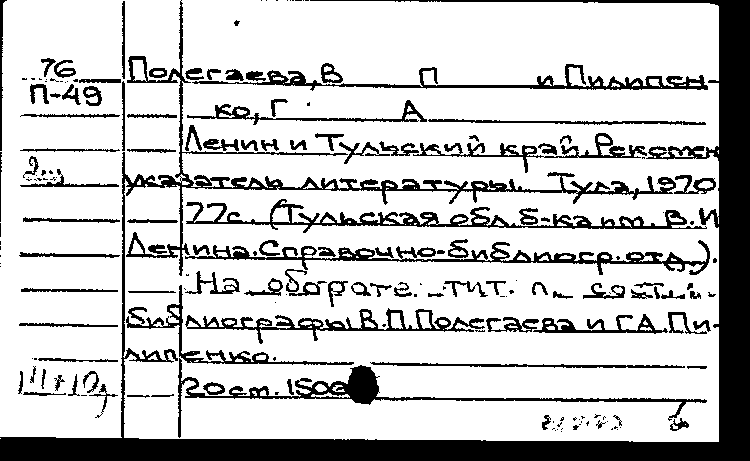 76 Полегаева, В П и Пилипен-
П-49 ко, Г А
Ленин и Тульский край. Рекомен
указатель литературы. Тула, 1970
77с. (Тульская обл. б-ка им. В.И
Ленина. Справочно-библиогр. отд.).
На обороте тит. л. сост.
библиографы В.П. Полегаева и Г.А. Пи-
липенко.
20 см. 1500